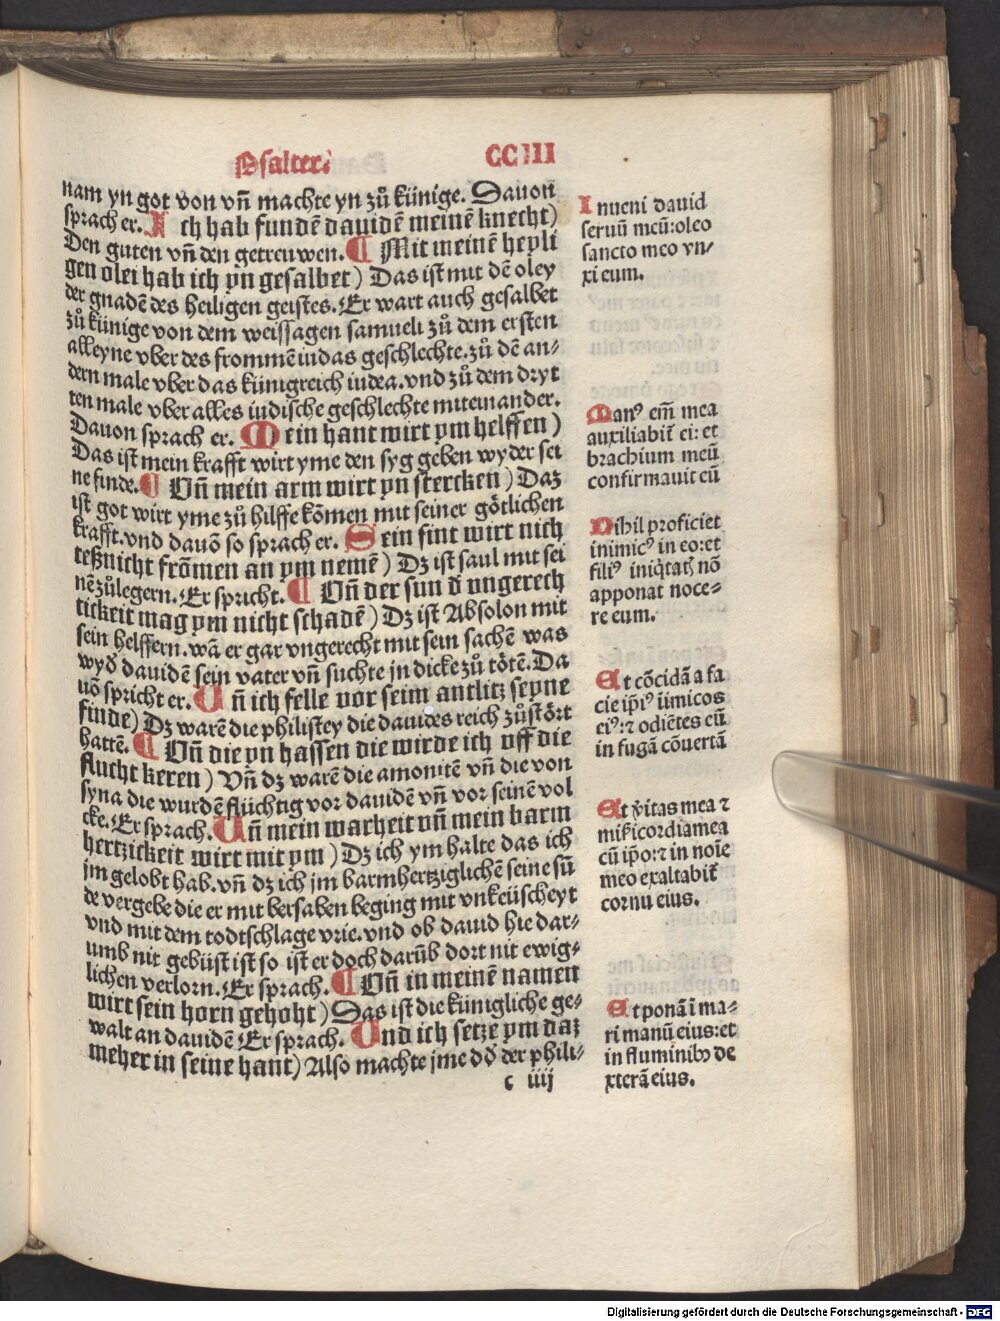 Psalter. CCIII
nam yn got von vñ machte yn zů künige. Dauon
sprach er. Ich hab fundē dauidē meinē knecht)
Den guten vñ den getreuwen. ¶ Mit meinē heyli
gen olei hab ich yn gesalbet) Das ist mit dē oley
der gnadē des heiligen geistes. Er wart auch gesalbet
zů künige von dem weissagen samueli zů dem ersten
alleyne vber des frommē iudas geschlechte. zů dē an⸗
dern male vber das künigreich iudea. vnd zů dem dryt
ten male vber alles iudische geschlechte miteinander.
Dauon sprach er. Mein hant wirt ym helffen)
Das ist mein krafft wirt yme den syg geben wyder sei
ne finde. ¶ Vñ mein arm wirt yn stercken) Daz
ist got wirt yme zů hilffe kōmen mit seiner götlichen
krafft. vnd dauō so sprach er. Sein fint wirt nich
teßnicht frōmen an ym nemē) Dz ist saul mit sei
nē zůlegern. Er spricht. ¶ Vñ der sun d̄ vngerech
tickeit mag ym nicht schadē) Dz ist Absolon mit
sein helffern. wā er gar vngerecht mit sein sachē was
wyd̄ dauidē sein vater vñ suchte jn dicke zů tötē. Da
uō spricht er. Vñ ich felle vor seim antlitz seyne
finde) Dz warē die philistey die dauides reich zůstört
hattē. ¶ Vñ die yn hassen die wirde ich vff die
flucht keren) Vñ dz warē die amonitē vñ die von
syna die wurdē flüchtig vor dauidē vñ vor seinē vol
cke. Er sprach. Vñ mein warheit vñ mein barm
hertzickeit wirt mit ym) Dz ich ym halte das ich
jm gelobt hab. vñ dz ich jm barmhertziglichē seine sü
de vergebe die er mit bersaben beging mit vnkeüscheyt
vnd mit dem todtschlage vrie. vnd ob dauid hie dar⸗
umb nit gebüst ist so ist er doch darüb dort nit ewig⸗
lichen verlorn. Er sprach. ¶ Vñ in meinē namen
wirt sein horn gehoht) Das ist die künigliche ge⸗
walt an dauidē Er sprach. Vnd ich setze ym daz
meher in seine hant) Also machte jme dd̄ der phili⸗
c iiij
Inueni dauid
seruū meū:oleo
sancto meo vn⸗
xi eum.
Manꝰ em̄ mea
auxiliabit̄ ei: et
brachium meū
confirmauit eū
Nihil proficiet
inimicꝰ in eo:et
filiꝰ iniq̇tatꝭ nō
apponat noce⸗
re eum.
Et cōcidā a fa
cie ip̄iꝰ inimicos
eiꝰ:⁊ odiētes eū
in fugā cōuertā
Et v̄itas mea ⁊
mik̄icordia mea
cū ip̄o:⁊ in noīe
meo exaltabit̄
cornu eius.
Et ponā ī ma⸗
ri manū eius:et
in fluminibꝫ de
xterā eius.
Digitalisierung gefördert durch die Deutsche Forschungsgemeinschaft - DFG